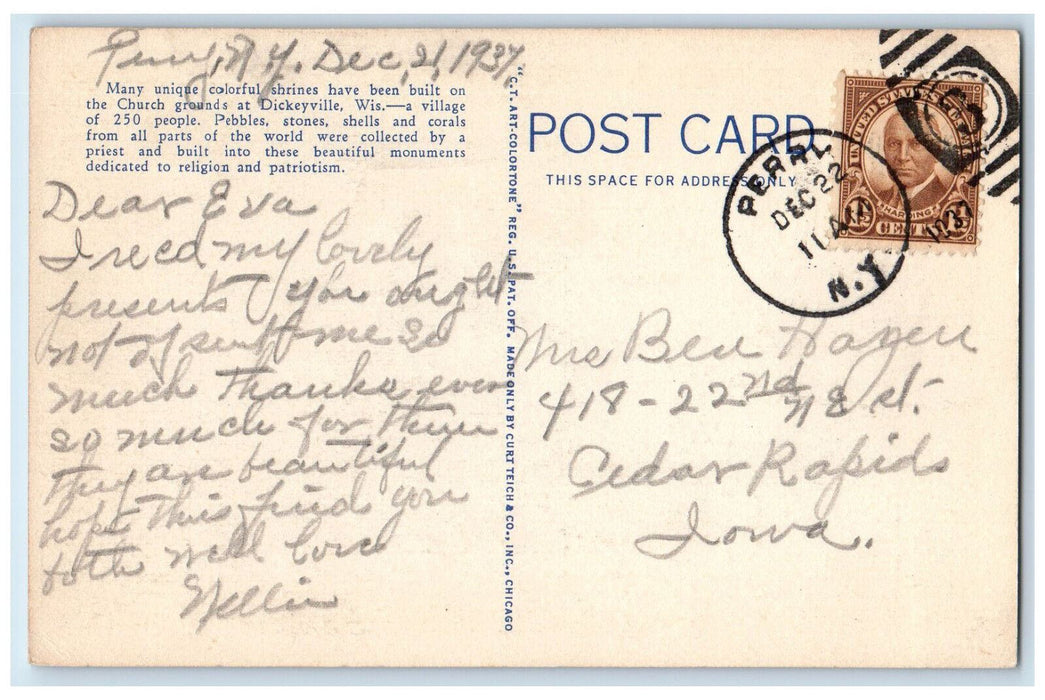 Perry, N.Y. Dec, 21, 1937
Many unique colorful shrines have been built on
the Church grounds at Dickeyville, Wis.—a village
of 250 people. Pebbles, stones, shells and corals
from all parts of the world were collected by a
priest and built into these beautiful monuments
dedicated to religion and patriotism.
Dear Eva
I recd my lovely
presents you ought
not of sent me so
much thanks ever
so much for them
they are beautiful
hope this finds you
both well love
Nellie
"C.T. ART-COLORTONE" REG. U.S. PAT. OFF. MADE ONLY BY CURT TEICH & CO., INC., CHICAGO
POST CARD
THIS SPACE FOR ADDRESS ONLY
UNITED STATES
HARDING
CENTS
DEC 22
11 AM
1937
N.Y.
Mrs Ben Hagen
418 - 22nd NE St.
Cedar Rapids
Iowa.